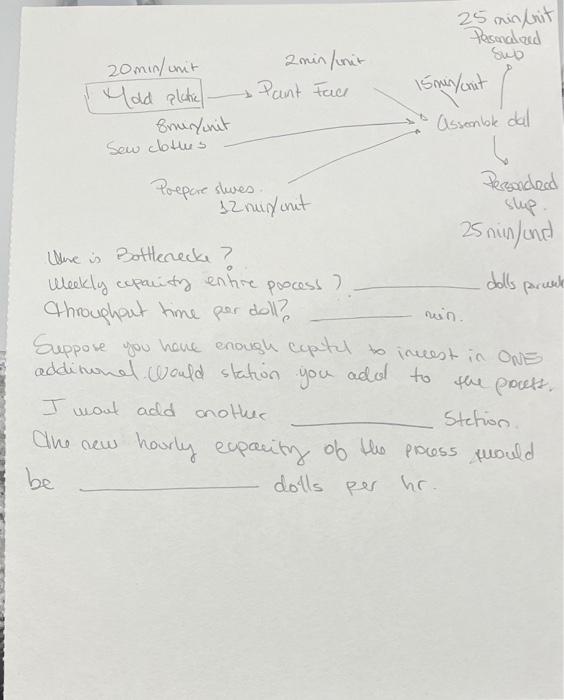 25 min/unit
Personalized
Sub
20 min/unit
2min/unit
Mold plate
Paint Face
15min/unit
8min/unit
Sew clothes
Assemble dal
Prepare shoes.
12 min/unit
ship.
25 min/unit
is Bottleneck ?
Weekly capacity entire process ? ________ dolls
throughput time per doll? ________ min.
Suppose you have enough capital to invest in ONE
additional would station you add to the process.
I wout add another ________ Station.
The new hourly capacity of the process would
be ________ dolls per hr.